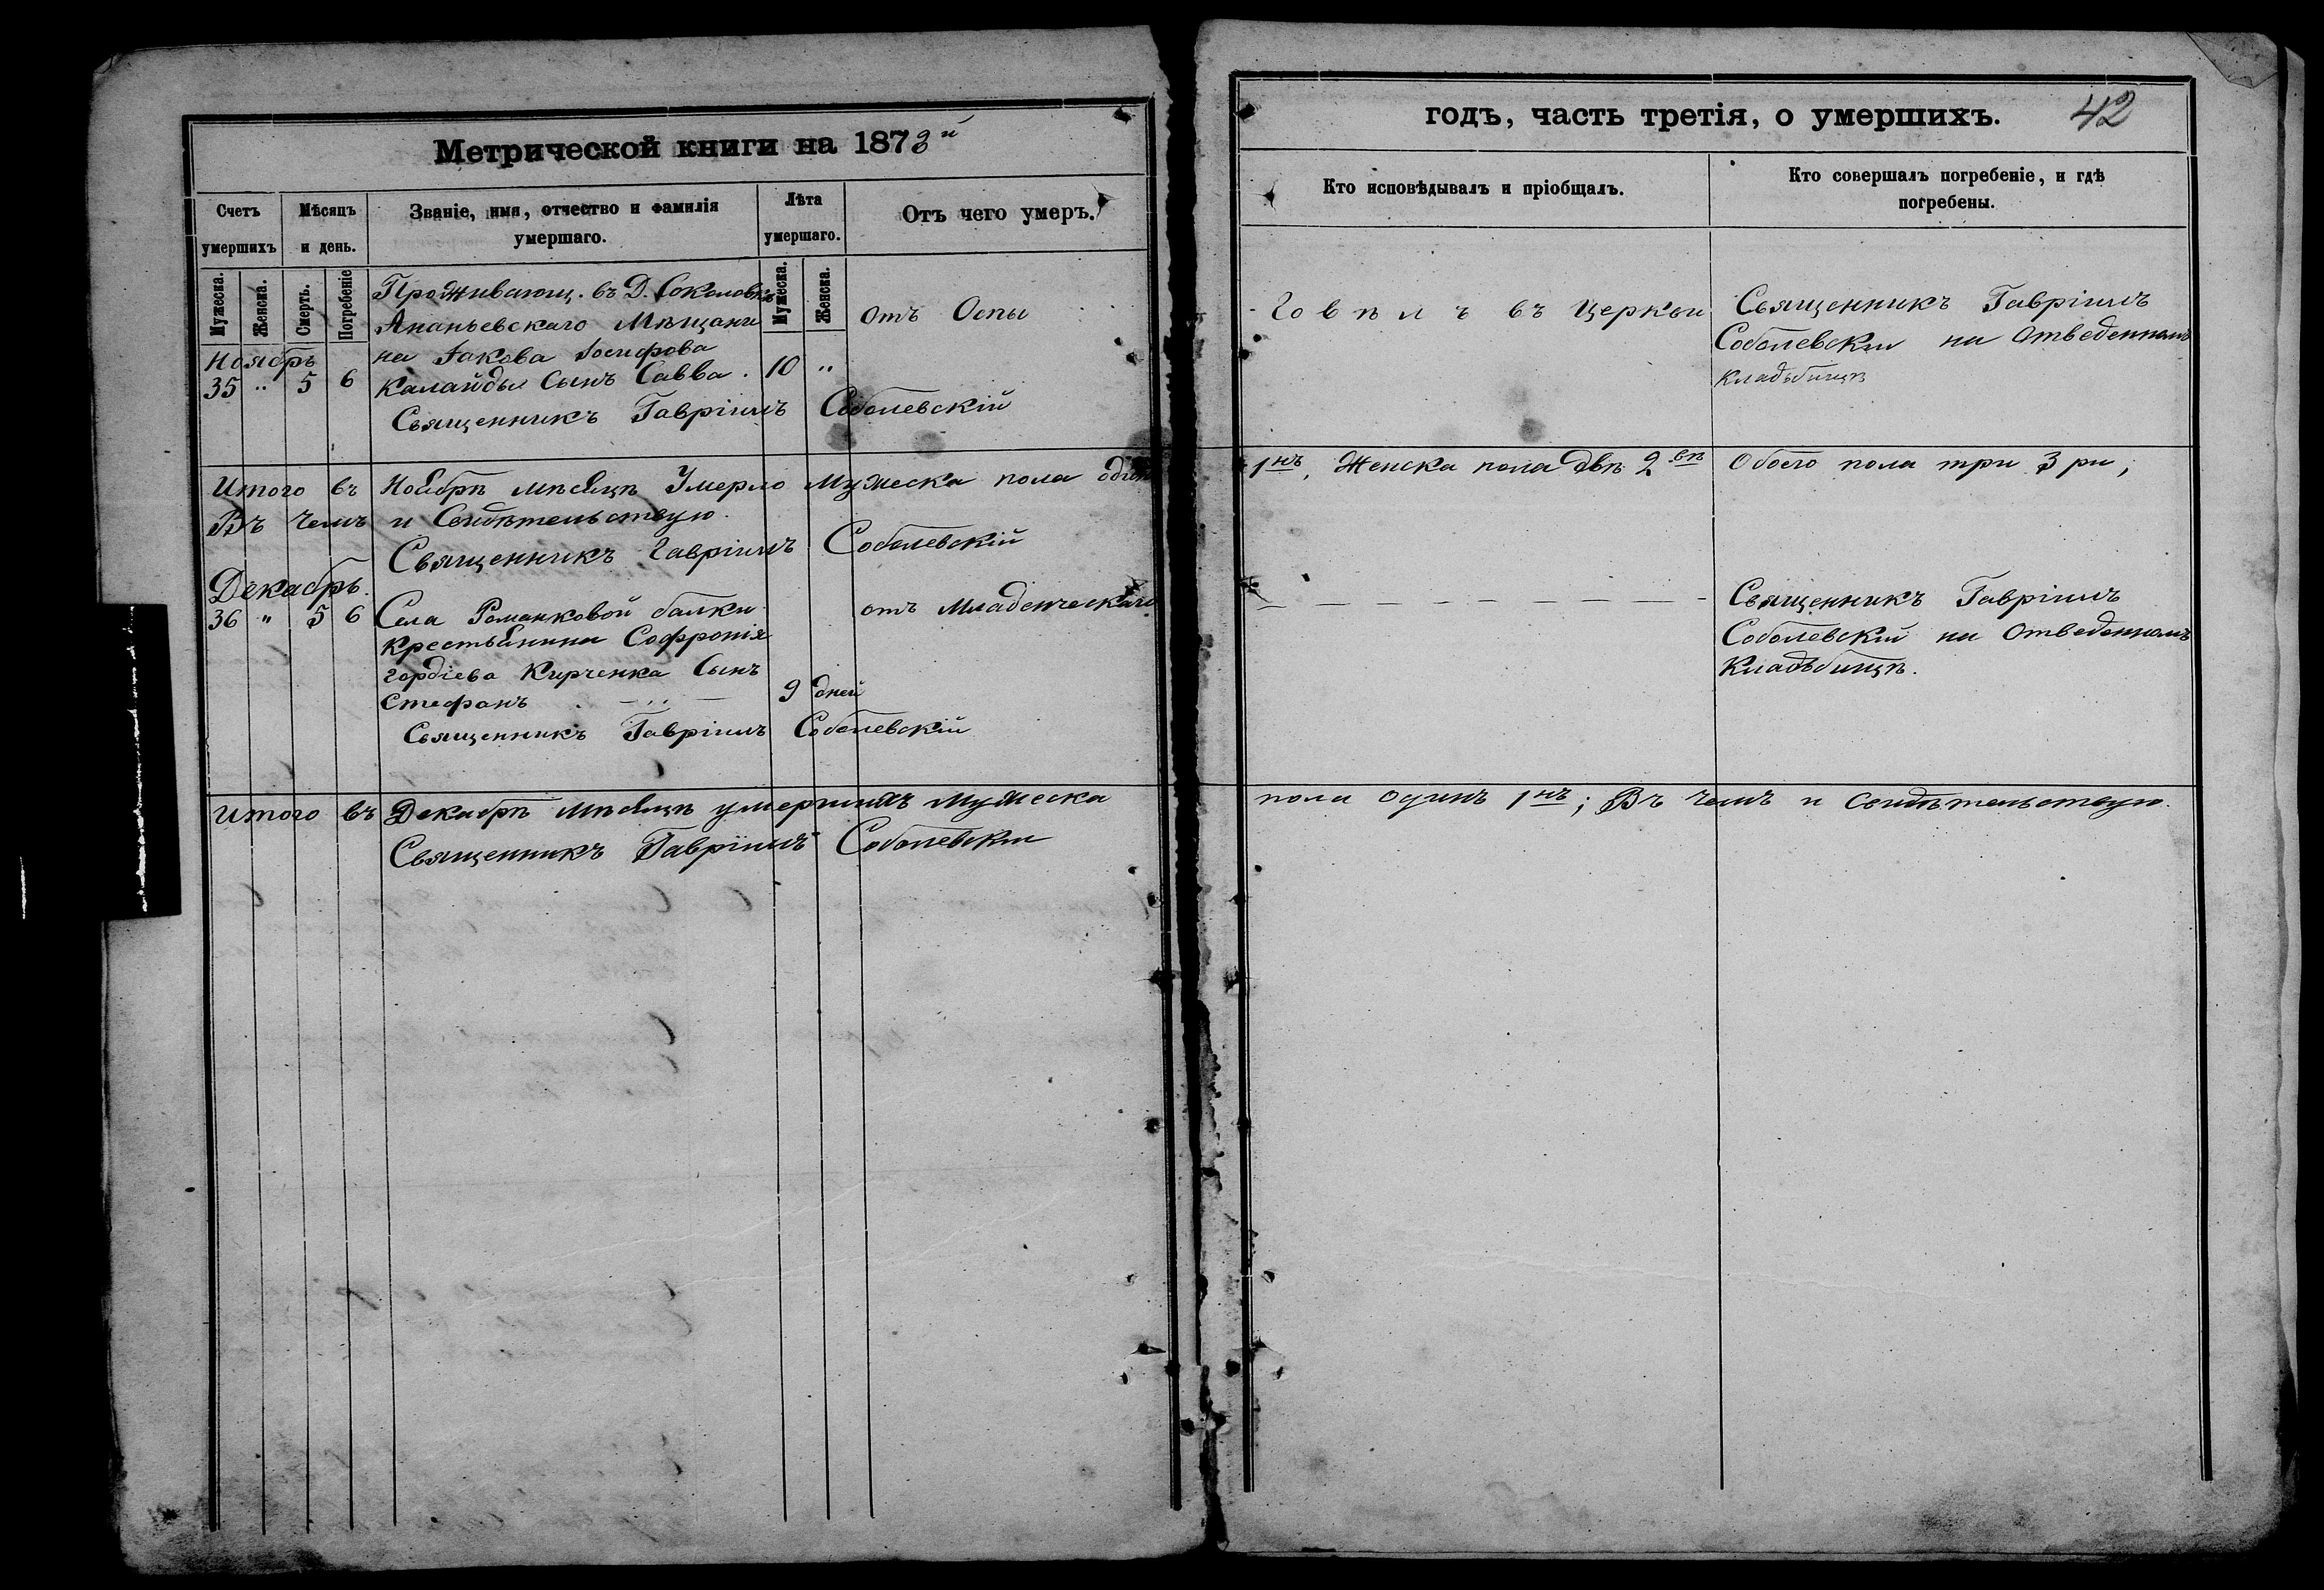 Метрической книги на 1873й
Счетъ умершихъ
Мѣсяцъ и день.
Званіе, имя, отчество и фамилія умершаго.
Лѣта умершаго.
Отъ чего умеръ.
Мужеска.
Женска.
Смерть.
Погребеніе
Мужеска.
Женска.
Проживающ. въ Д. Соколовкѣ
Ананьевскаго Мѣщани
на Іакова Іосифова
Ноябрь
35 " 5 6 Калайды Сынъ Савва . 10 "
отъ Оспы
Священникъ Гавріилъ Соболевскій
Итого въ Ноябрѣ мѣсяцѣ Умерло Мужеска пола одинъ
Въ чемъ и Свидѣтельствую.
Священникъ Гавріилъ Соболевскій
Декабрь.
36 " 5 6 Села Романковой балки отъ Младенческаго
Крестьянина Софронія
Гордіева Кирченка Сынъ
Стефанъ 9 дней
Священникъ Гавріилъ Соболевскій
Итого въ Декабрѣ мѣсяцѣ умершихъ Мужеска
Священникъ Гавріилъ Соболевскій
годъ, часть третія, о умершихъ. 42
Кто исповѣдывалъ и пріобщалъ.
Кто совершалъ погребеніе, и гдѣ
погребены.
Говѣлъ въ Церкви
Священникъ Гавріилъ
Соболевскій на Отведенномъ
Кладьбищѣ
1нъ, Женска пола двѣ 2вѣ Обоего пола три 3ри;
Священникъ Гавріилъ
Соболевскій на Отведенномъ
Кладьбищѣ.
пола одинъ 1нъ; Въ чемъ и Свидѣтельствую.